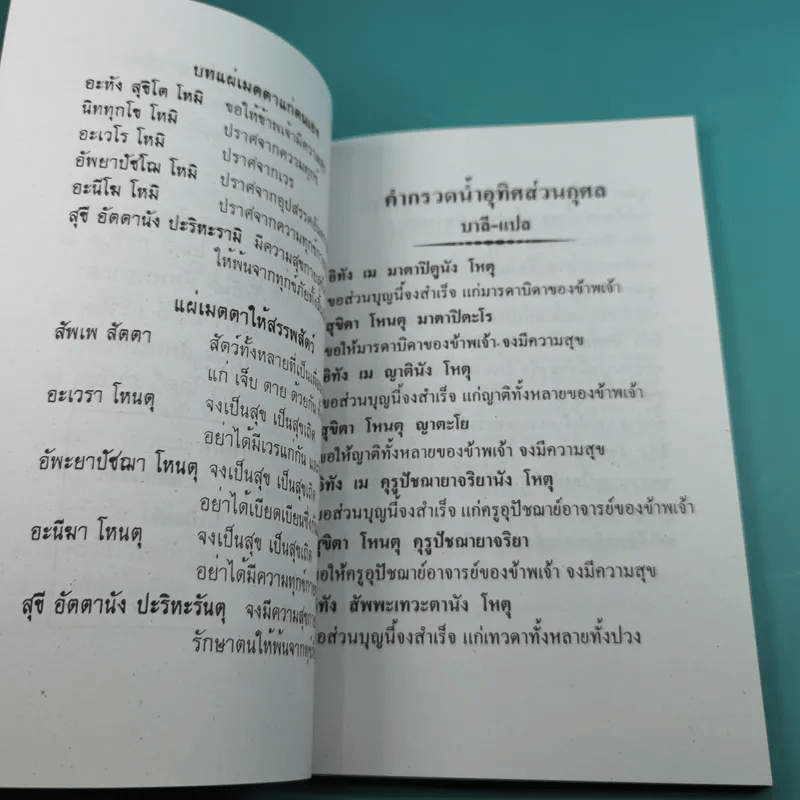 บทแผ่เมตตาแก่ตนเอง
อะหัง สุขิโต โหมิ ขอให้ข้าพเจ้ามีความสุข
นิททุกโข โหมิ ปราศจากความทุกข์
อะเวโร โหมิ ปราศจากเวร
อัพยาปัชโฌ โหมิ ปราศจากอุปสรรค
อะนีโฆ โหมิ ปราศจากความทุกข์
สุขี อัตตานัง ปะริหะรามิ มีความสุขกาย
ให้พ้นจากทุกข์ภัย
แผ่เมตตาให้สรรพสัตว์
สัพเพ สัตตา สัตว์ทั้งหลายที่เป็น
แก่ เจ็บ ตาย ด้วยกัน
อะเวรา โหนตุ จงเป็นสุข เป็นสุขเถิด
อย่าได้มีเวรแก่กัน
อัพะยาปัชฌา โหนตุ จงเป็นสุข เป็นสุขเถิด
อย่าได้เบียดเบียน
อะนีฆา โหนตุ จงเป็นสุข เป็นสุขเถิด
อย่าได้มีความทุกข์
สุขี อัตตานัง ปะริหะรันตุ จงมีความสุข
รักษาตนให้พ้นจาก
คำกรวดน้ำอุทิศส่วนกุศล
บาลี-แปล
อิทัง เม มาตาปิตูนัง โหตุ
ขอส่วนบุญนี้จงสำเร็จ แก่มารดาบิดาของข้าพเจ้า
สุขิตา โหนตุ มาตาปิตะโร
ขอให้มารดาบิดาของข้าพเจ้า จงมีความสุข
อิทัง เม ญาตินัง โหตุ
ขอส่วนบุญนี้จงสำเร็จ แก่ญาติทั้งหลายของข้าพเจ้า
สุขิตา โหนตุ ญาตะโย
ขอให้ญาติทั้งหลายของข้าพเจ้า จงมีความสุข
อิทัง เม คุรูปัชฌายาจริยานัง โหตุ
ขอส่วนบุญนี้จงสำเร็จ แก่ครูอุปัชฌาย์อาจารย์ของข้าพเจ้า
สุขิตา โหนตุ คุรูปัชฌายาจริยา
ขอให้ครูอุปัชฌาย์อาจารย์ของข้าพเจ้า จงมีความสุข
อิทัง สัพพะเทวะตานัง โหตุ
ขอส่วนบุญนี้จงสำเร็จ แก่เทวดาทั้งหลายทั้งปวง